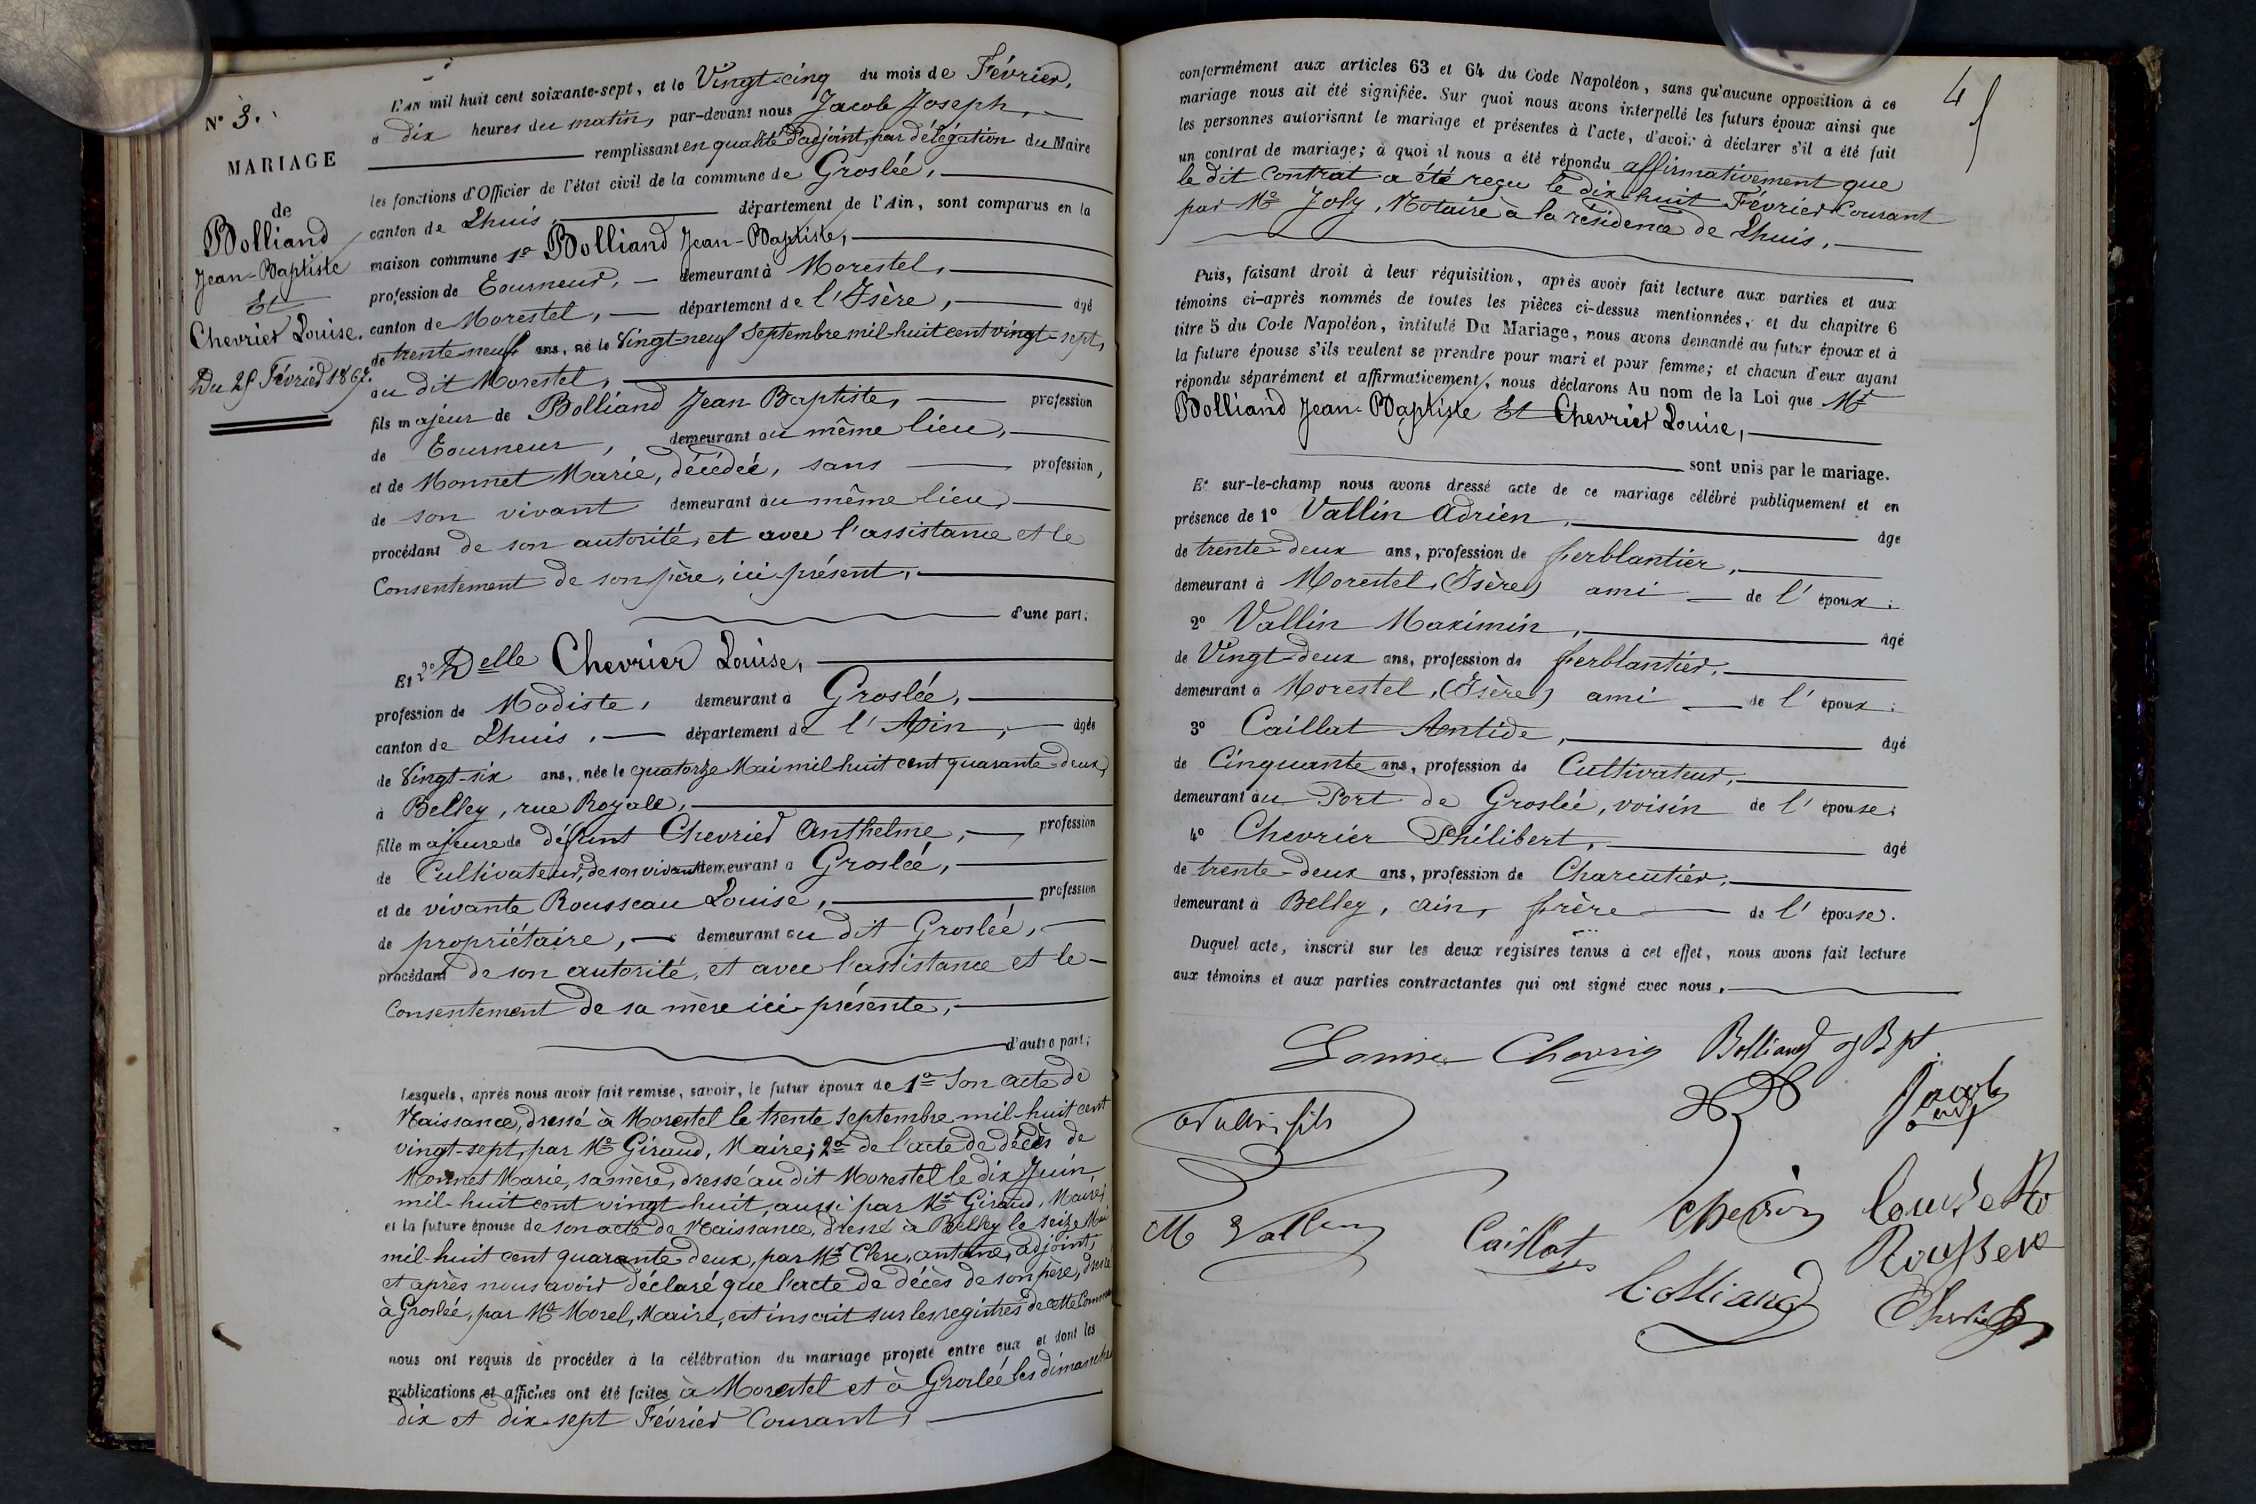 N° 3.
MARIAGE
de
Bolliand
Jean-Baptiste
Et
Chevrier Louise.
Du 25 Février 1867.
L'AN mil huit cent soixante-sept, et le Vingt-cinq du mois de Février,
à dix heures du matin, par-devant nous Jacob Joseph,
remplissant en qualité d'adjoint, par délégation du Maire
les fonctions d'Officier de l'état civil de la commune de Groslée,
canton de Lhuis, département de l'Ain, sont comparus en la
maison commune 1° Bolliand Jean-Baptiste,
profession de Tourneur, demeurant à Morestel,
canton de Morestel, département de l'Isère, âgé
de trente-neuf ans, né le Vingt-neuf Septembre mil-huit cent vingt-sept,
au dit Morestel,
fils majeur de Bolliand Jean Baptiste, profession
de Tourneur, demeurant au même lieu,
et de Monnet Marie, décédée, sans profession,
de son vivant demeurant au même lieu,
procédant de son autorité, et avec l'assistance et le
Consentement de son père, ici présent,
d'une part;
Et 2° Delle Chevrier Louise,
profession de Modiste, demeurant à Groslée,
canton de Lhuis, département de l'Ain, âgée
de Vingt-six ans, née le quatorze Mai mil huit cent quarante-deux,
à Belley, rue Royale,
fille majeure de défunt Chevrier Anthelme, profession
de Cultivateur, de son vivant demeurant à Groslée,
et de vivante Rousseau Louise, profession
de propriétaire, demeurant au dit Groslée,
procédant de son autorité, et avec l'assistance et le
Consentement de sa mère ici présente,
d'autre part;
Lesquels, après nous avoir fait remise, savoir, le futur époux de 1° Son acte de
Naissance, dressé à Morestel le trente Septembre mil-huit cent
vingt-sept, par Mr Giraud, Maire; 2° de l'acte de décès de
Monnet Marie, sa mère, dressé au dit Morestel le dix Juin
mil-huit cent vingt-huit, aussi par Mr Giraud, Maire;
et la future épouse de son acte de Naissance, dressé à Belley le seize Mai
mil-huit cent quarante deux, par Mr Clerc, antoine, adjoint,
et après nous avoir déclaré que l'acte de décès de son père, dressé
à Groslée, par Mr Morel, Maire, est inscrit sur les registres de cette Commune
nous ont requis de procéder à la célébration du mariage projeté entre eux et dont les
publications et affiches ont été faites à Morestel et à Groslée les dimanches
dix et dix-sept Février Courant,
4
conformément aux articles 63 et 64 du Code Napoléon, sans qu'aucune opposition à ce
mariage nous ait été signifiée. Sur quoi nous avons interpellé les futurs époux ainsi que
les personnes autorisant le mariage et présentes à l'acte, d'avoir à déclarer s'il a été fait
un contrat de mariage; à quoi il nous a été répondu affirmativement que
le dit Contrat a été reçu le dix-huit Février Courant
par Me Joly, Notaire à la résidence de Lhuis,
Puis, faisant droit à leur réquisition, après avoir fait lecture aux parties et aux
témoins ci-après nommés de toutes les pièces ci-dessus mentionnées, et du chapitre 6
titre 5 du Code Napoléon, intitulé Du Mariage, nous avons demandé au futur époux et à
la future épouse s'ils veulent se prendre pour mari et pour femme; et chacun d'eux ayant
répondu séparément et affirmativement, nous déclarons Au nom de la Loi que Mr
Bolliand Jean-Baptiste Et Chevrier Louise,
sont unis par le mariage.
Et sur-le-champ nous avons dressé acte de ce mariage célébré publiquement et en
présence de 1° Vallin Adrien, âgé
de trente-deux ans, profession de ferblantier,
demeurant à Morestel, (Isère) ami de l'époux;
2° Vallin Maximin, âgé
de Vingt-deux ans, profession de ferblantier,
demeurant à Morestel, (Isère) ami de l'époux;
3° Caillat Antide, âgé
de Cinquante ans, profession de Cultivateur,
demeurant au Port de Groslée, voisin de l'épouse;
4° Chevrier Philibert, âgé
de trente-deux ans, profession de Charcutier,
demeurant à Belley, ain, frère de l'épouse.
Duquel acte, inscrit sur les deux registres tenus à cet effet, nous avons fait lecture
aux témoins et aux parties contractantes qui ont signé avec nous,
Louise Chevrier Bolliand J Bpt
Jacob
adj
AVallin fils
M Vallin Caillat Chevrier Louise Ro
Rousseau
Bolliand